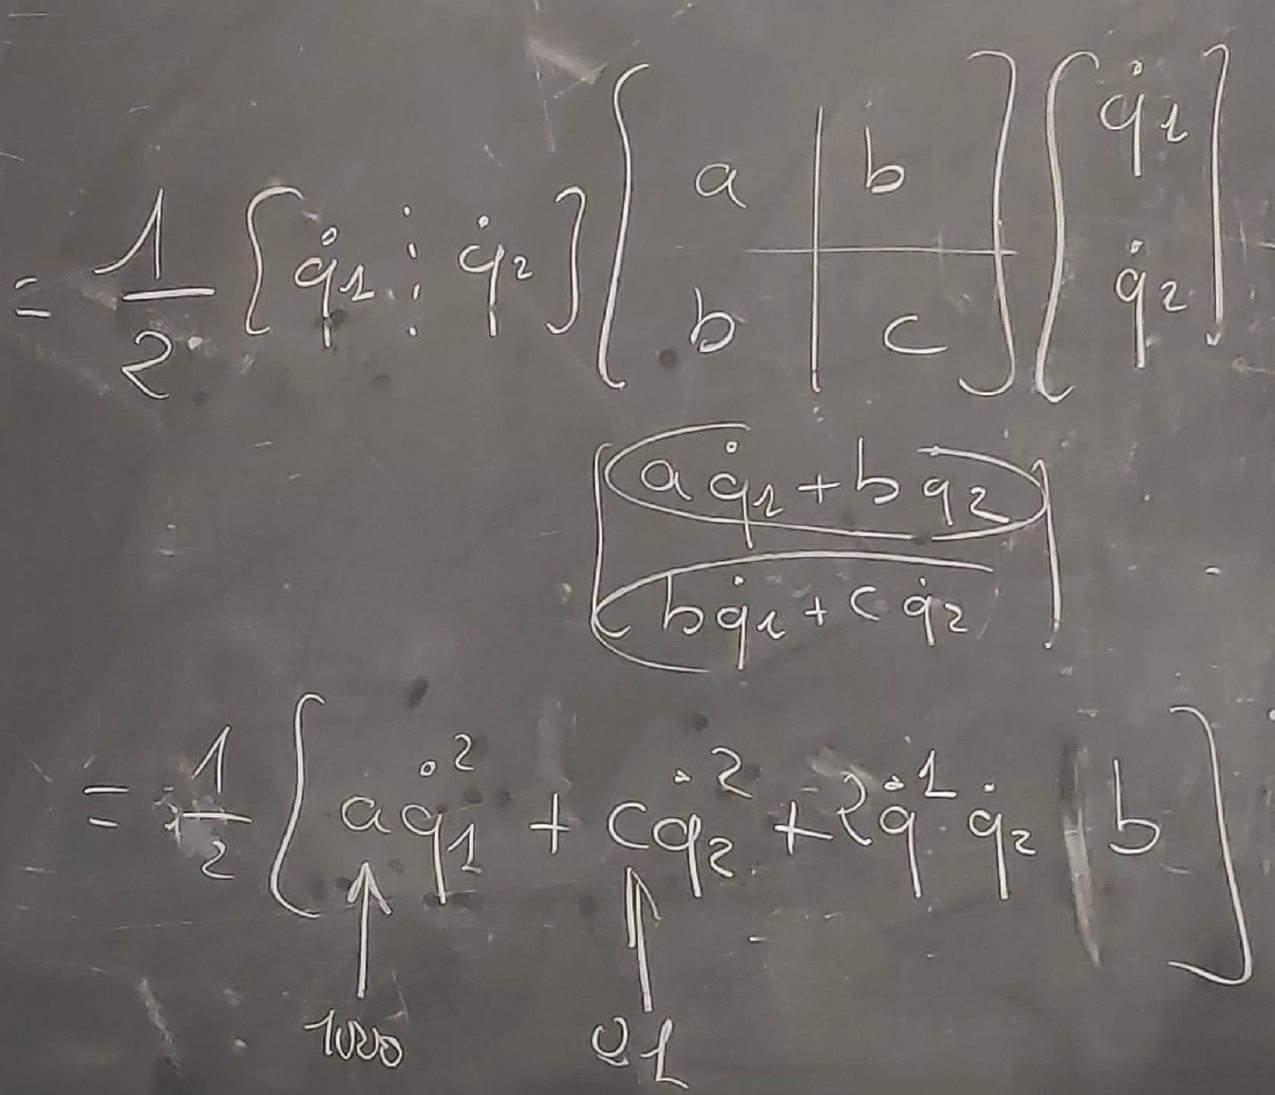 = 1/2 [q̇1 ⋮ q̇2] [a | b ; b | c] [q̇1 ; q̇2]
[a q̇1 + b q2
b q̇1 + c q̇2]
= 1/2 [a q̇1² + c q̇2² + 2 q̇¹ q̇2 b]
1000 01